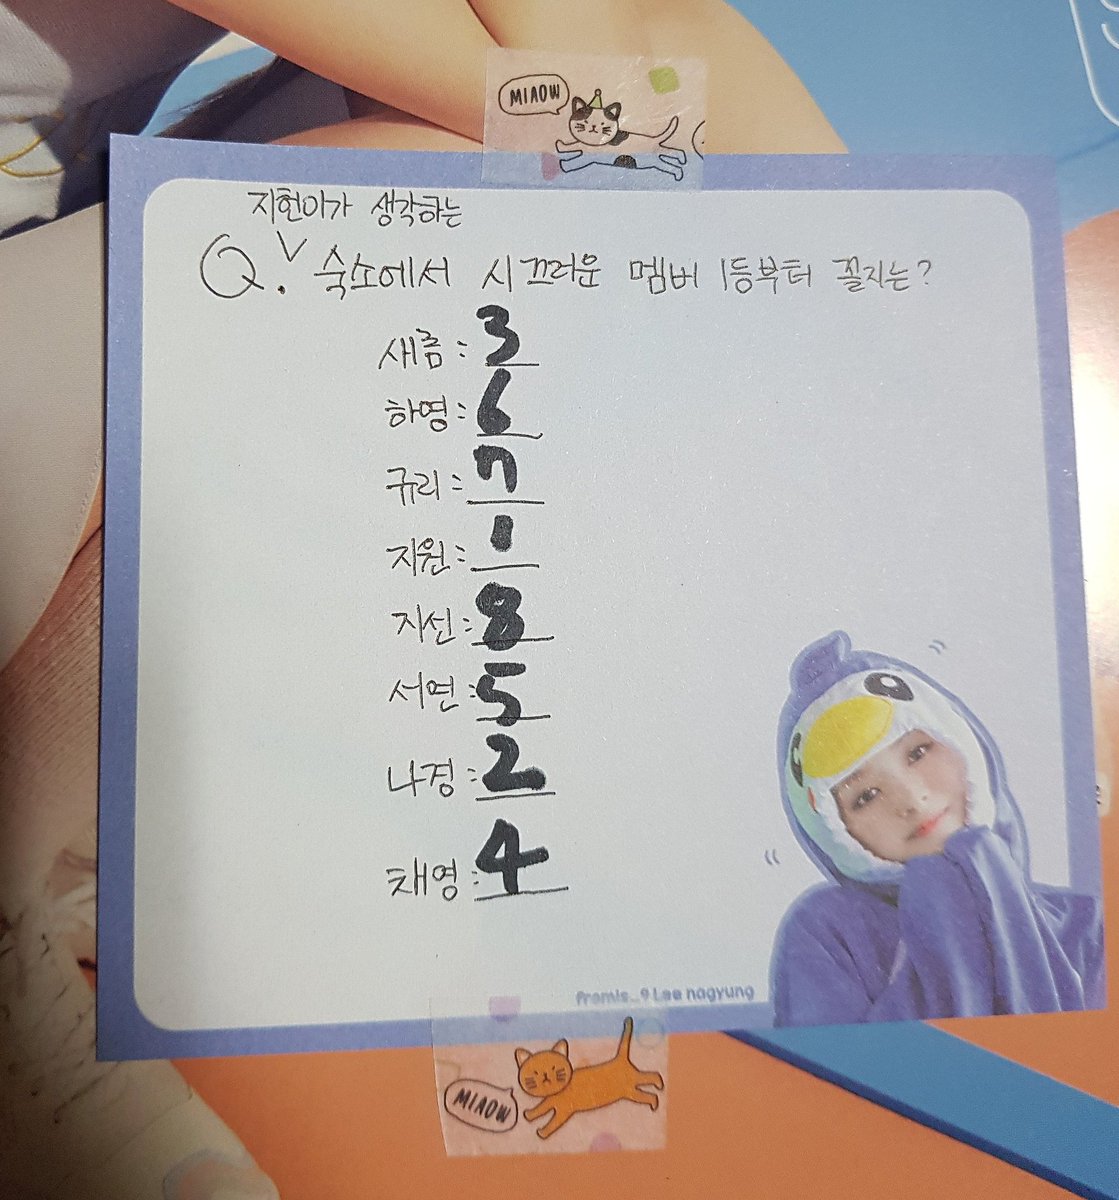 MIAOW
지헌이가 생각하는
Q. V 숙소에서 시끄러운 멤버 1등부터 꼴지는?
새롬: 3
하영: 6
규리: 7
지원: 1
지선: 8
서연: 5
나경: 2
채영: 4
fromis_9 Lee nagyung
MIAOW